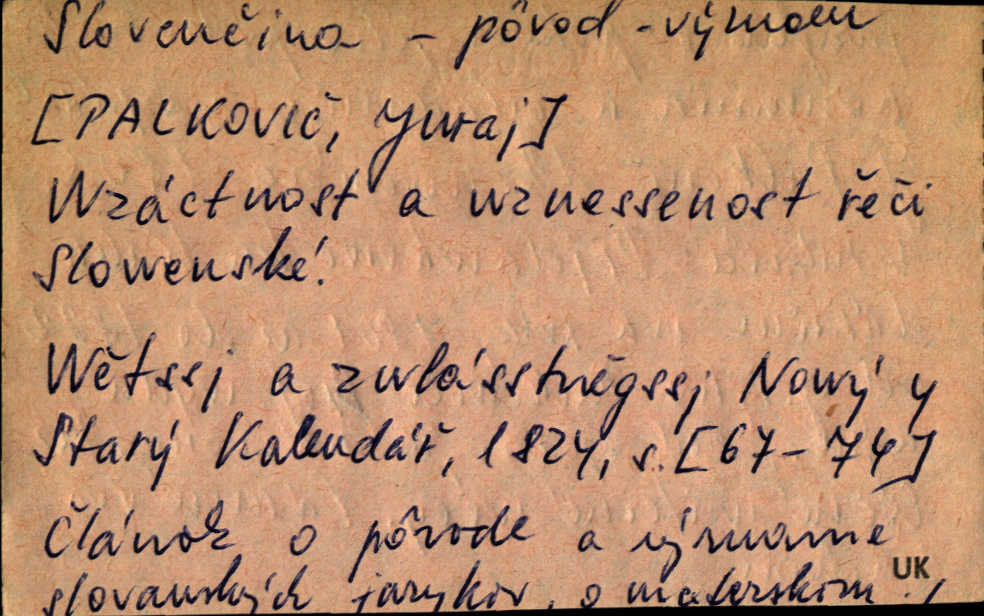 Slovenčina - pôvod - význam
[PALKOVIČ, Juraj]
Wzáctnost a wznessenost řeči
Slowenské.
Wětssj a zwlásstněgssj Nowý y
Starý Kalendář, 1824, s. [67-74]
Článok o pôvode a význame
UK
slovanských jazykov, o materskom